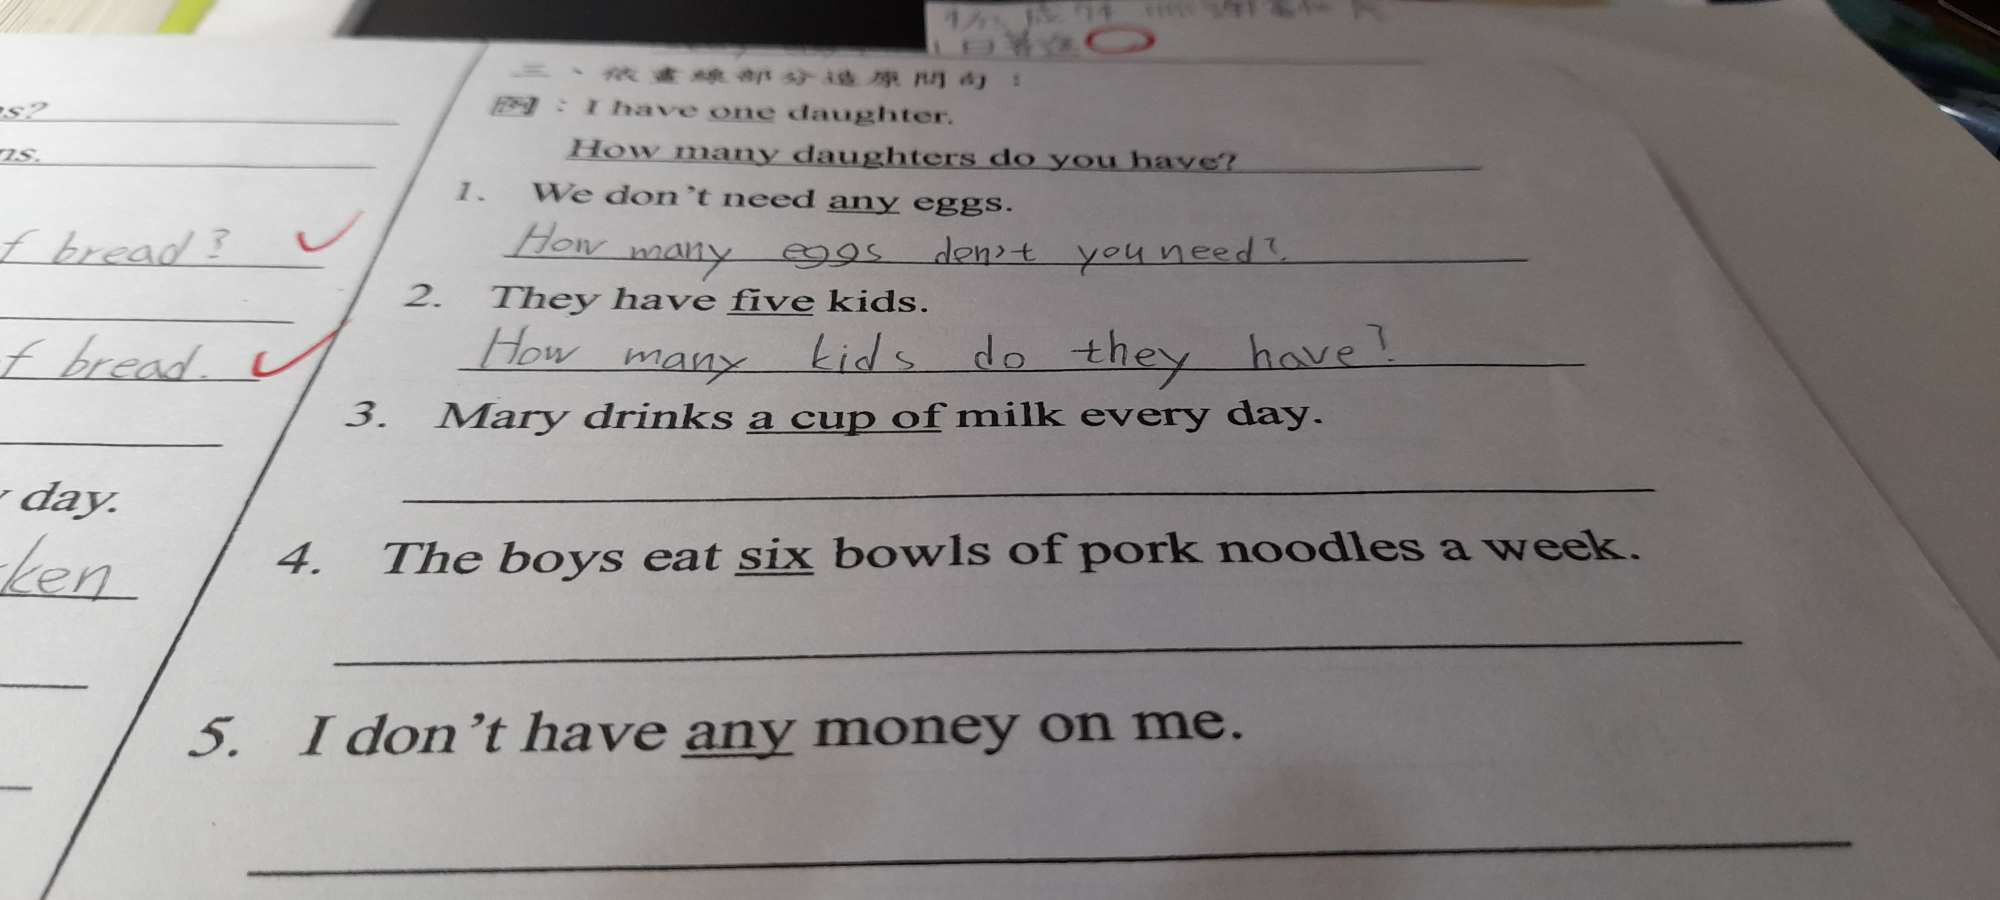 s?
ns.
f bread?
f bread.
day.
ken
三、依畫線部分造原問句：
例：I have one daughter.
How many daughters do you have?
1. We don't need any eggs.
How many eggs don't you need?
2. They have five kids.
How many kids do they have?
3. Mary drinks a cup of milk every day.
4. The boys eat six bowls of pork noodles a week.
5. I don't have any money on me.